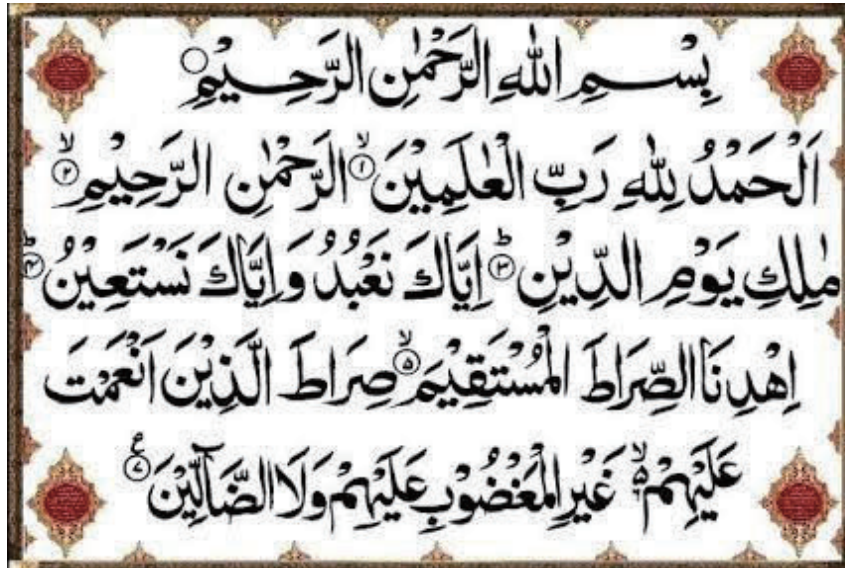 بِسْمِ اللّٰهِ الرَّحْمٰنِ الرَّحِيْمِ
اَلْحَمْدُ لِلّٰهِ رَبِّ الْعٰلَمِيْنَ ۙ﴿۱﴾ الرَّحْمٰنِ الرَّحِيْمِ ۙ﴿۲﴾
مٰلِكِ يَوْمِ الدِّيْنِ ؕ﴿۳﴾ اِيَّاكَ نَعْبُدُ وَاِيَّاكَ نَسْتَعِيْنُ ؕ﴿۴﴾
اِهْدِنَا الصِّرَاطَ الْمُسْتَقِيْمَ ۙ﴿۵﴾ صِرَاطَ الَّذِيْنَ اَنْعَمْتَ
عَلَيْهِمْ ۙ۬ غَيْرِ الْمَغْضُوْبِ عَلَيْهِمْ وَلَا الضَّآلِّيْنَ ﴿۷﴾